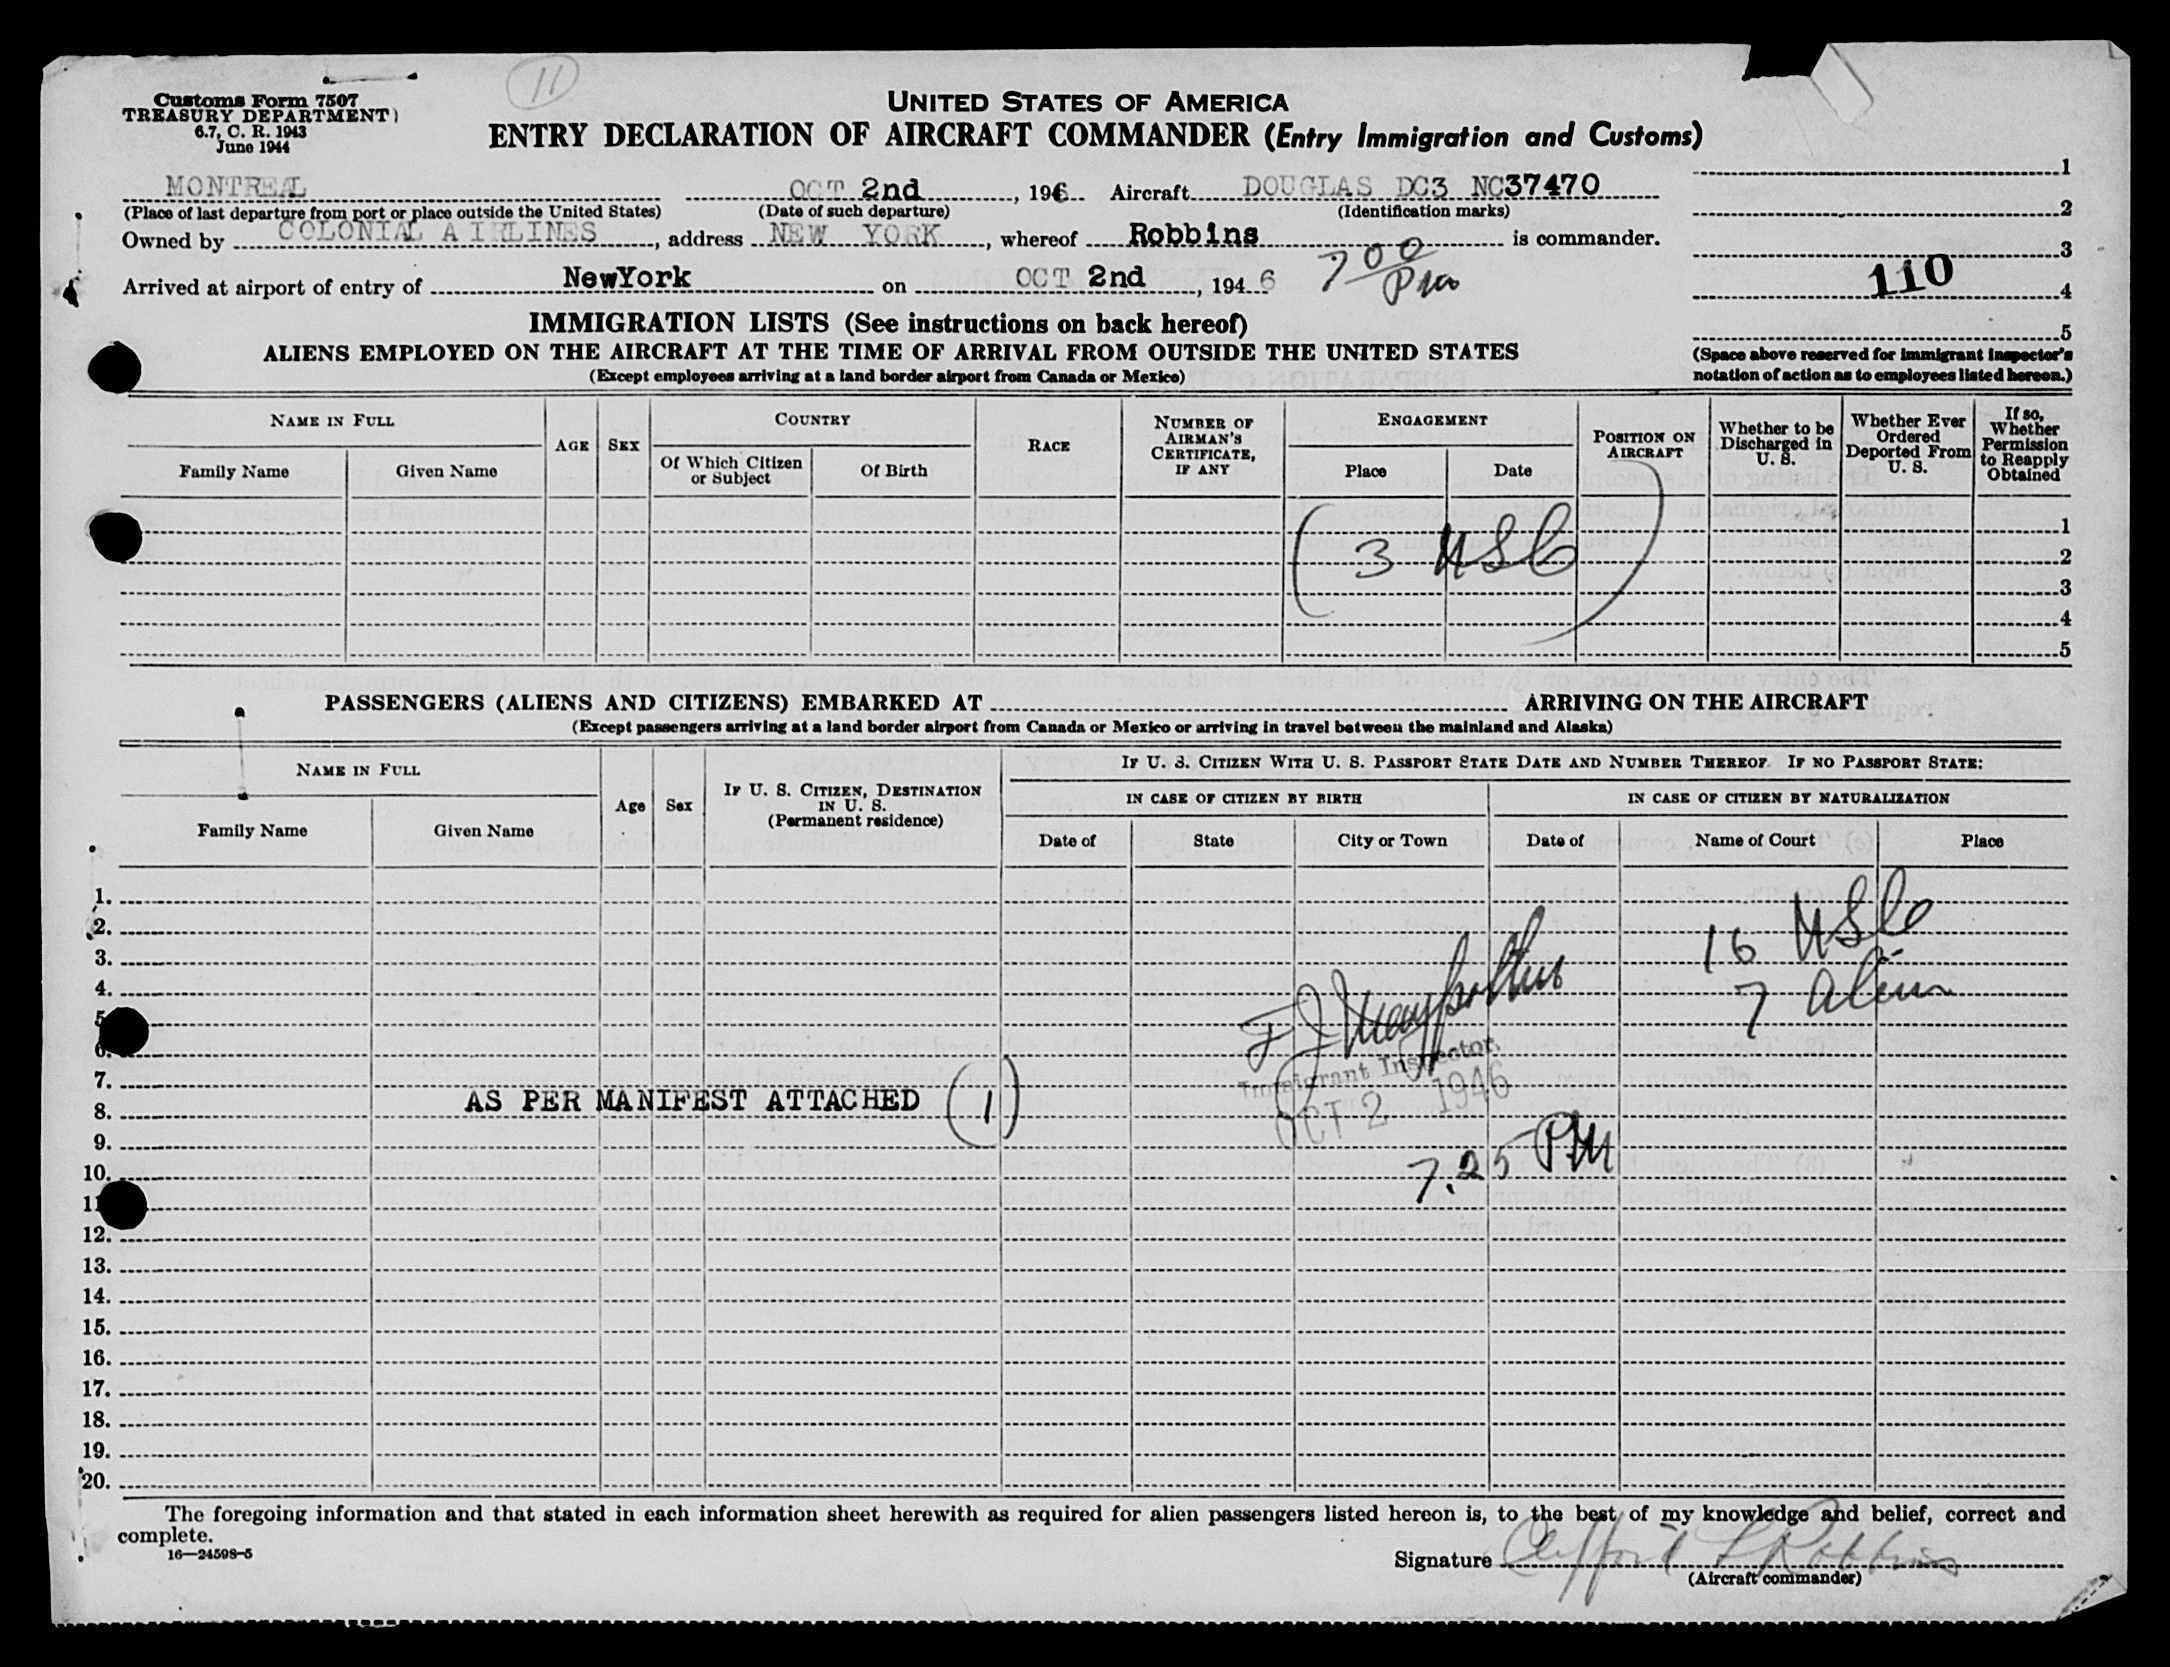 11
Customs Form 7507
TREASURY DEPARTMENT)
6.7, C. R. 1943
June 1944
UNITED STATES OF AMERICA
ENTRY DECLARATION OF AIRCRAFT COMMANDER (Entry Immigration and Customs)
MONTREAL OCT 2nd, 1946 Aircraft DOUGLAS DC3 NC37470
(Place of last departure from port or place outside the United States) (Date of such departure) (Identification marks)
Owned by COLONIAL AIRLINES, address NEW YORK, whereof Robbins is commander.
Arrived at airport of entry of NewYork on OCT 2nd, 1946 7 00 Pm
1
2
3
110 4
5
(Space above reserved for immigrant inspector's
notation of action as to employees listed hereon.)
IMMIGRATION LISTS (See instructions on back hereof)
ALIENS EMPLOYED ON THE AIRCRAFT AT THE TIME OF ARRIVAL FROM OUTSIDE THE UNITED STATES
(Except employees arriving at a land border airport from Canada or Mexico)
NAME IN FULL
Family Name Given Name
AGE SEX
COUNTRY
Of Which Citizen or Subject Of Birth
RACE
NUMBER OF AIRMAN'S CERTIFICATE, IF ANY
ENGAGEMENT
Place Date
POSITION ON AIRCRAFT
Whether to be Discharged in U. S.
Whether Ever Ordered Deported From U. S.
If so, Whether Permission to Reapply Obtained
1
(3 USC) 2
3
4
5
PASSENGERS (ALIENS AND CITIZENS) EMBARKED AT ARRIVING ON THE AIRCRAFT
(Except passengers arriving at a land border airport from Canada or Mexico or arriving in travel between the mainland and Alaska)
NAME IN FULL
Family Name Given Name
Age Sex
IF U. S. CITIZEN, DESTINATION IN U. S.
(Permanent residence)
IF U. S. CITIZEN WITH U. S. PASSPORT STATE DATE AND NUMBER THEREOF IF NO PASSPORT STATE:
IN CASE OF CITIZEN BY BIRTH IN CASE OF CITIZEN BY NATURALIZATION
Date of State City or Town Date of Name of Court Place
1.
2. 16 USC
3.
4. 7 Alien
5.
6.
7. Immigrant Inspector.
8. AS PER MANIFEST ATTACHED (1) OCT 2 1946
9.
10. 7.25 PM
11
12.
13.
14.
15.
16.
17.
18.
19.
20.
The foregoing information and that stated in each information sheet herewith as required for alien passengers listed hereon is, to the best of my knowledge and belief, correct and
complete.
16—24598-5
Signature Clifford L Robbins
(Aircraft commander)